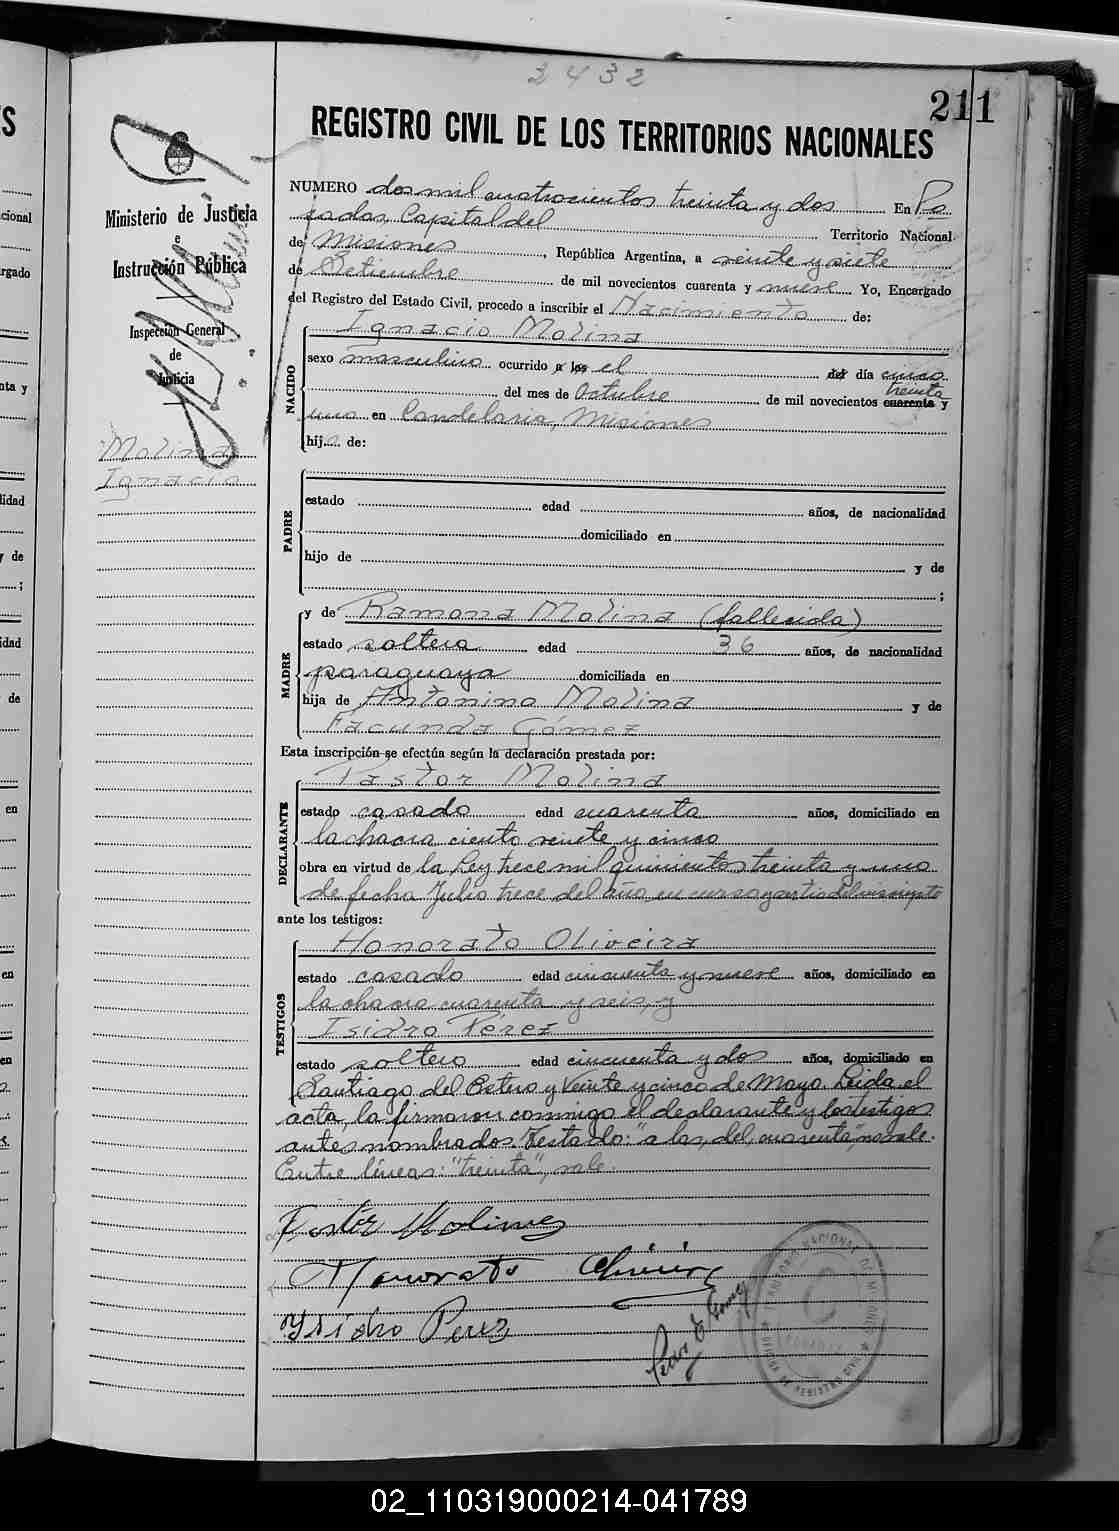 2432
211
REGISTRO CIVIL DE LOS TERRITORIOS NACIONALES
Ministerio de Justicia
e
Instrucción Pública
Inspección General
de
Justicia
Molina
Ignacio
NUMERO dos mil cuatrocientos treinta y dos En Po
sadas, Capital del Territorio Nacional
de Misiones, República Argentina, a veinte y siete
de Setiembre de mil novecientos cuarenta y nueve Yo, Encargado
del Registro del Estado Civil, procedo a inscribir el Nacimiento de:
NACIDO
Ignacio Molina
sexo masculino ocurrido a las el del día cinco
treinta
del mes de Octubre de mil novecientos cuarenta y
uno en Candelaria, Misiones
hijo de:
PADRE
estado edad años, de nacionalidad
domiciliado en
hijo de y de
;
MADRE
y de Ramona Molina (fallecida)
estado soltera edad 36 años, de nacionalidad
paraguaya domiciliada en
hija de Antonino Molina y de
Facunda Gómez
Esta inscripción se efectúa según la declaración prestada por:
DECLARANTE
Pastor Molina
estado casado edad cuarenta años, domiciliado en
la chacra ciento veinte y cinco
obra en virtud de la Ley trece mil quinientos treinta y uno
de fecha Julio trece del año en curso y
ante los testigos:
TESTIGOS
Honorato Oliveira
estado casado edad cincuenta y nueve años, domiciliado en
la chacra cuarenta y seis, y
Isidro Pérez
estado soltero edad cincuenta y dos años, domiciliado en
Santiago del Estero y Veinte y cinco de Mayo. Leida el
acta, la firmaron conmigo el declarante y los testigos
antes nombrados. Testado: "a las, del, cuarenta", no vale.
Entre líneas: "treinta", vale.
Pastor Molina
Honorato Oliveira
Ysidro Perez
Gomez
TERRITORIO NACIONAL DE MISIONES
02_110319000214-041789